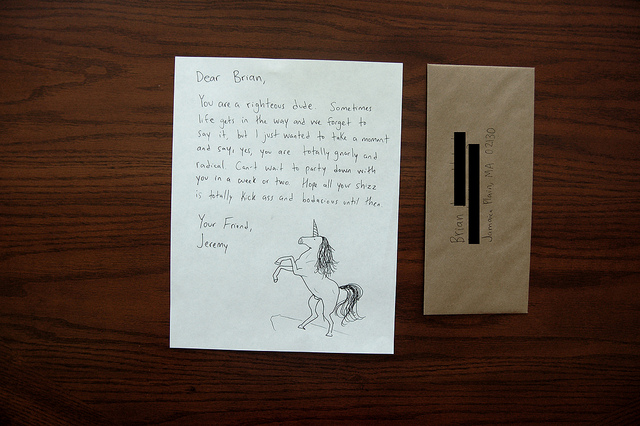 Dear Brian,
You are a righteous dude Sometimes
life gets in the way and we forget to
say it, but I just wanted to take a moment
and say, yes, you are totally gnarly and
radical. Can't wait to party down with
you in a week or two. Hope all your shizz
is totally kick ass and bodacious until then.
Your Friend,
Jeremy
Brian
Jamaica Plain, MA 02130